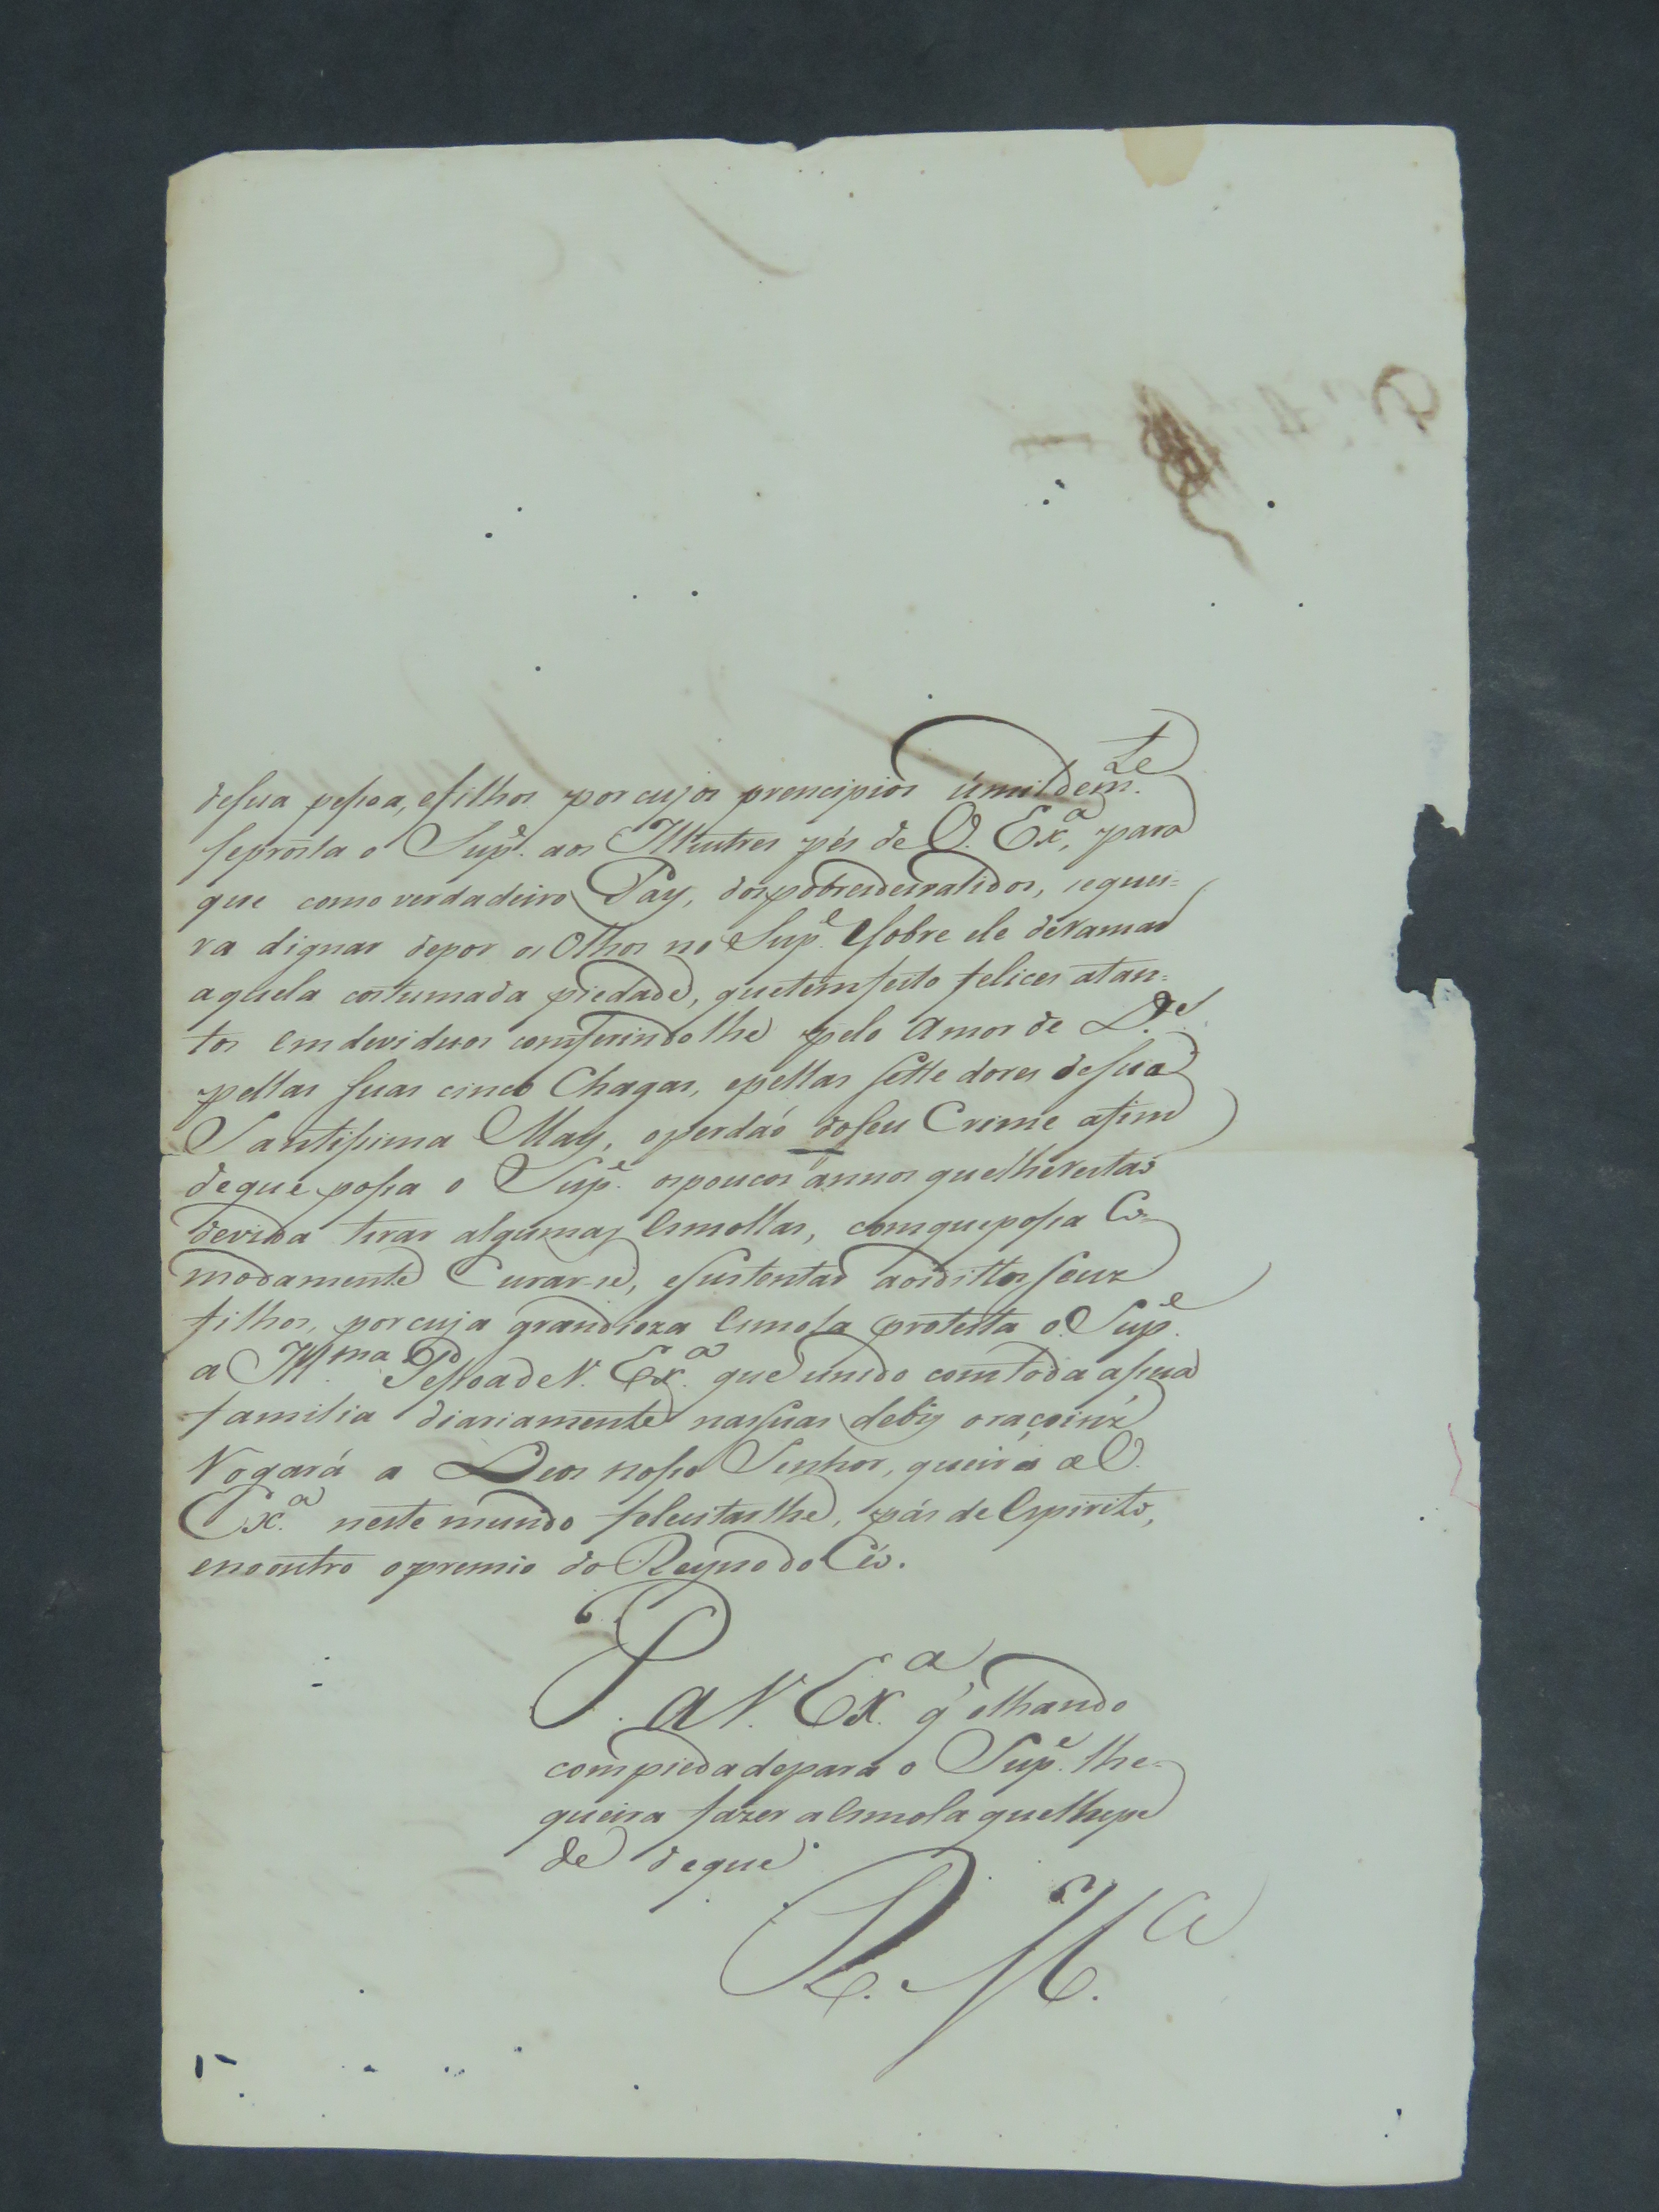 desua pessoa, efilhos por cujos prencipios úmildem.te
seprosta o Sup.e aos Illustres pés de V. Ex.a, para
que como verdadeiro Pay, dos pobresdesvalidos, sequei=
ra dignar depor os Olhos no Sup.e Esobre ele deramar
aquela costumada piedade, quetemfeito felices atan=
tos emdeviduos comferindolhe pelo Amor de D.s
pellas suas cinco Chagas, epellas sette dores desua
Santissima May, operdaó doseu Crime afim
deque possa o Sup.e ospoucos annos quelheresta
devida tirar algumas Esmollas, comquepossa Co=
modamente Curar-se, esustentar aosdittos seuz
filhos, porcuja grandioza Esmola protesta o Sup.e
a Ill.ma Pessoa de V. Ex.a que unido comtoda asua
familia diariamente nassuas debis oraçoinz
Rogará a Deos nosso Senhor, queira a V.
Ex.a neste mundo felecitarlhe, pás de Espirito,
enooutro opremio do Reyno do Céo.
P. a V. Ex.a q' olhando
compiedadepara o Sup.e lhe=
queira fazer aEsmola quelhepe
de deque
R. M.ca